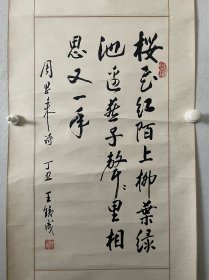 樱花红陌上柳葉绿
池邊燕子聲〻里相
思又一年
周恩来诗 丁丑 王铁成